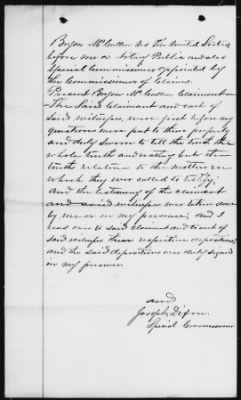 Bryon McCullen vs The United States
before me a Notary Public and also
Special Commissioner appointed by
the Commissioners of Claims.
Present Bryon McCullen Claimant
The said Claimant and each of
said witnesses, were first before any
questions were put to them properly
and duly sworn to tell the truth the
whole truth and nothing but the
truth relative to the matters in
which they were called to testify,
And the testimony of the claimant
and said witnesses was taken down
by me or in my presence, and I
read over to said claimant and to each of
said witnesses their respective depositions,
and the said depositions were duly signed
in my presence
and
Joseph Dixon
Special Commissioner